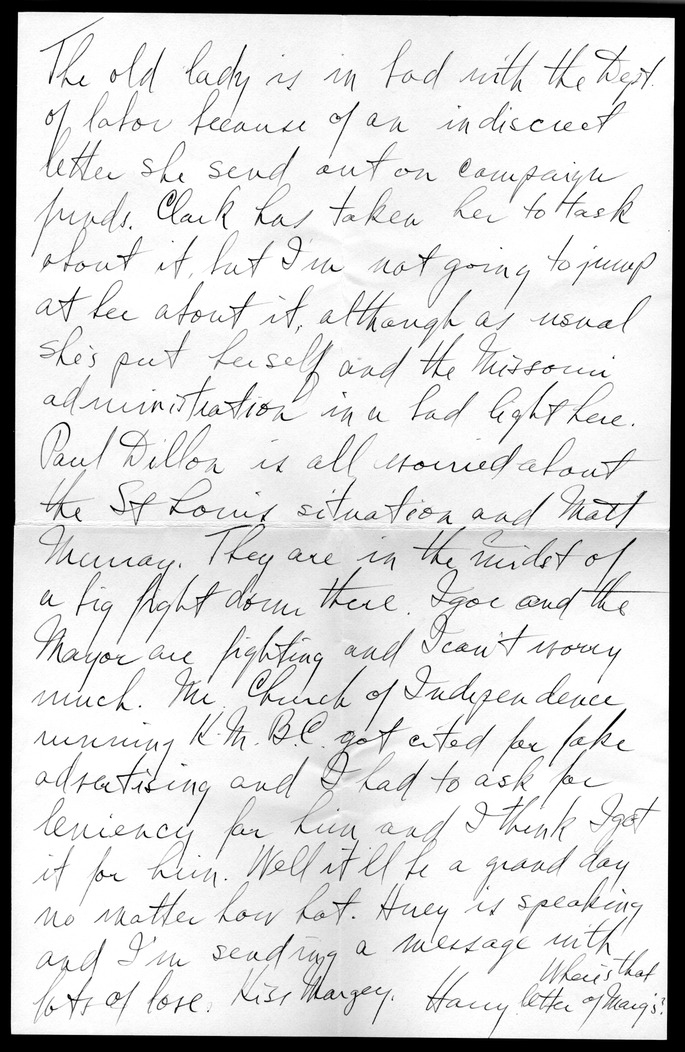 The old lady is in bad with the Dept.
of labor because of an indiscreet
letter she send out on campaign
funds. Clark has taken her to task
about it, but I'm not going to jump
at her about it, although as usual
she's put herself and the Missouri
administration in a bad light here.
Paul Dillon is all worried about
the St Louis situation and Matt
Murray. They are in the midst of
a big fight down there. Igoe and the
Mayor are fighting and I can't worry
much. Mr. Church of Independence
running K.M.B.C. got cited for fake
advertising and I had to ask for
leniency for him and I think I got
it for him. Well it'll be a grand day
no matter how hot. Huey is speaking
and I'm sending a message with
lots of love. Kiss Margey. Harry
Where's that
letter of Marg's?